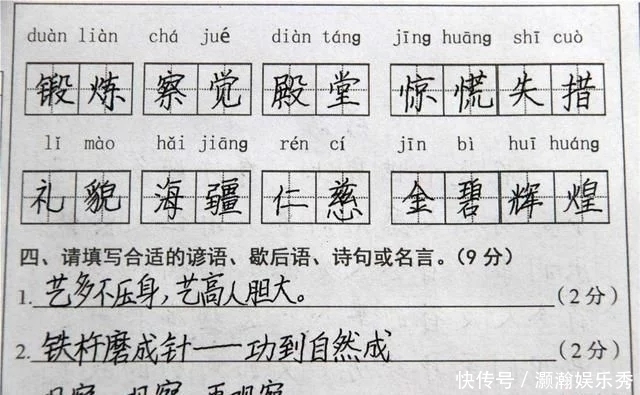 duàn liàn chá jué diàn táng jīng huāng shī cuò
锻炼 察觉 殿堂 惊慌失措
lǐ mào hǎi jiāng rén cí jīn bì huī huáng
礼貌 海疆 仁慈 金碧辉煌
四、请填写合适的谚语、歇后语、诗句或名言。(9分)
1. 艺多不压身,艺高人胆大。(2分)
2. 铁杵磨成针——功到自然成 (2分)
快传号/灏瀚娱乐秀